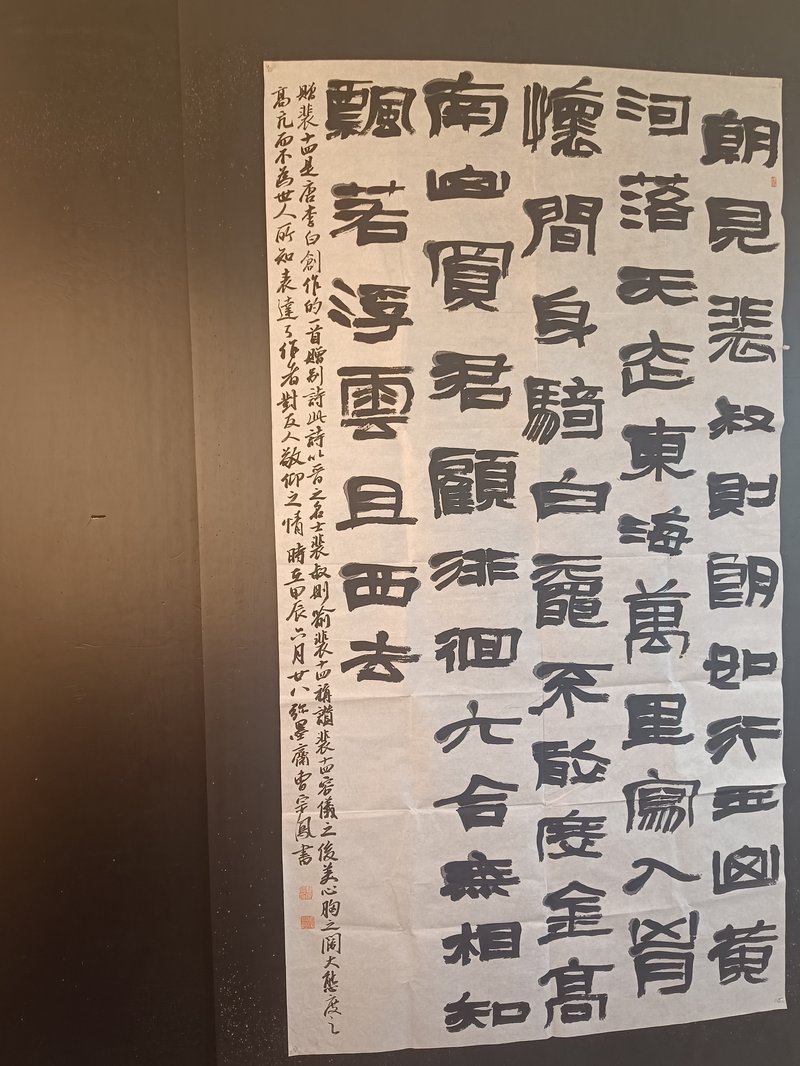 朝見裴叔則朗如行玉山黄
河落天走東海萬里寫入胷
懷間身騎白黿不敢度金高
南山買君顧徘徊六合無相知
飄若浮雲且西去
贈裴十四是唐李白創作的一首贈别詩此詩以晋之名士裴叔則喻裴十四稱讚裴十四容儀之俊美心胸之闊大態度之
高亢而不為世人所知表達了作者對友人敬仰之情 時在甲辰六月廿八弥墨齋曹宗鳳書